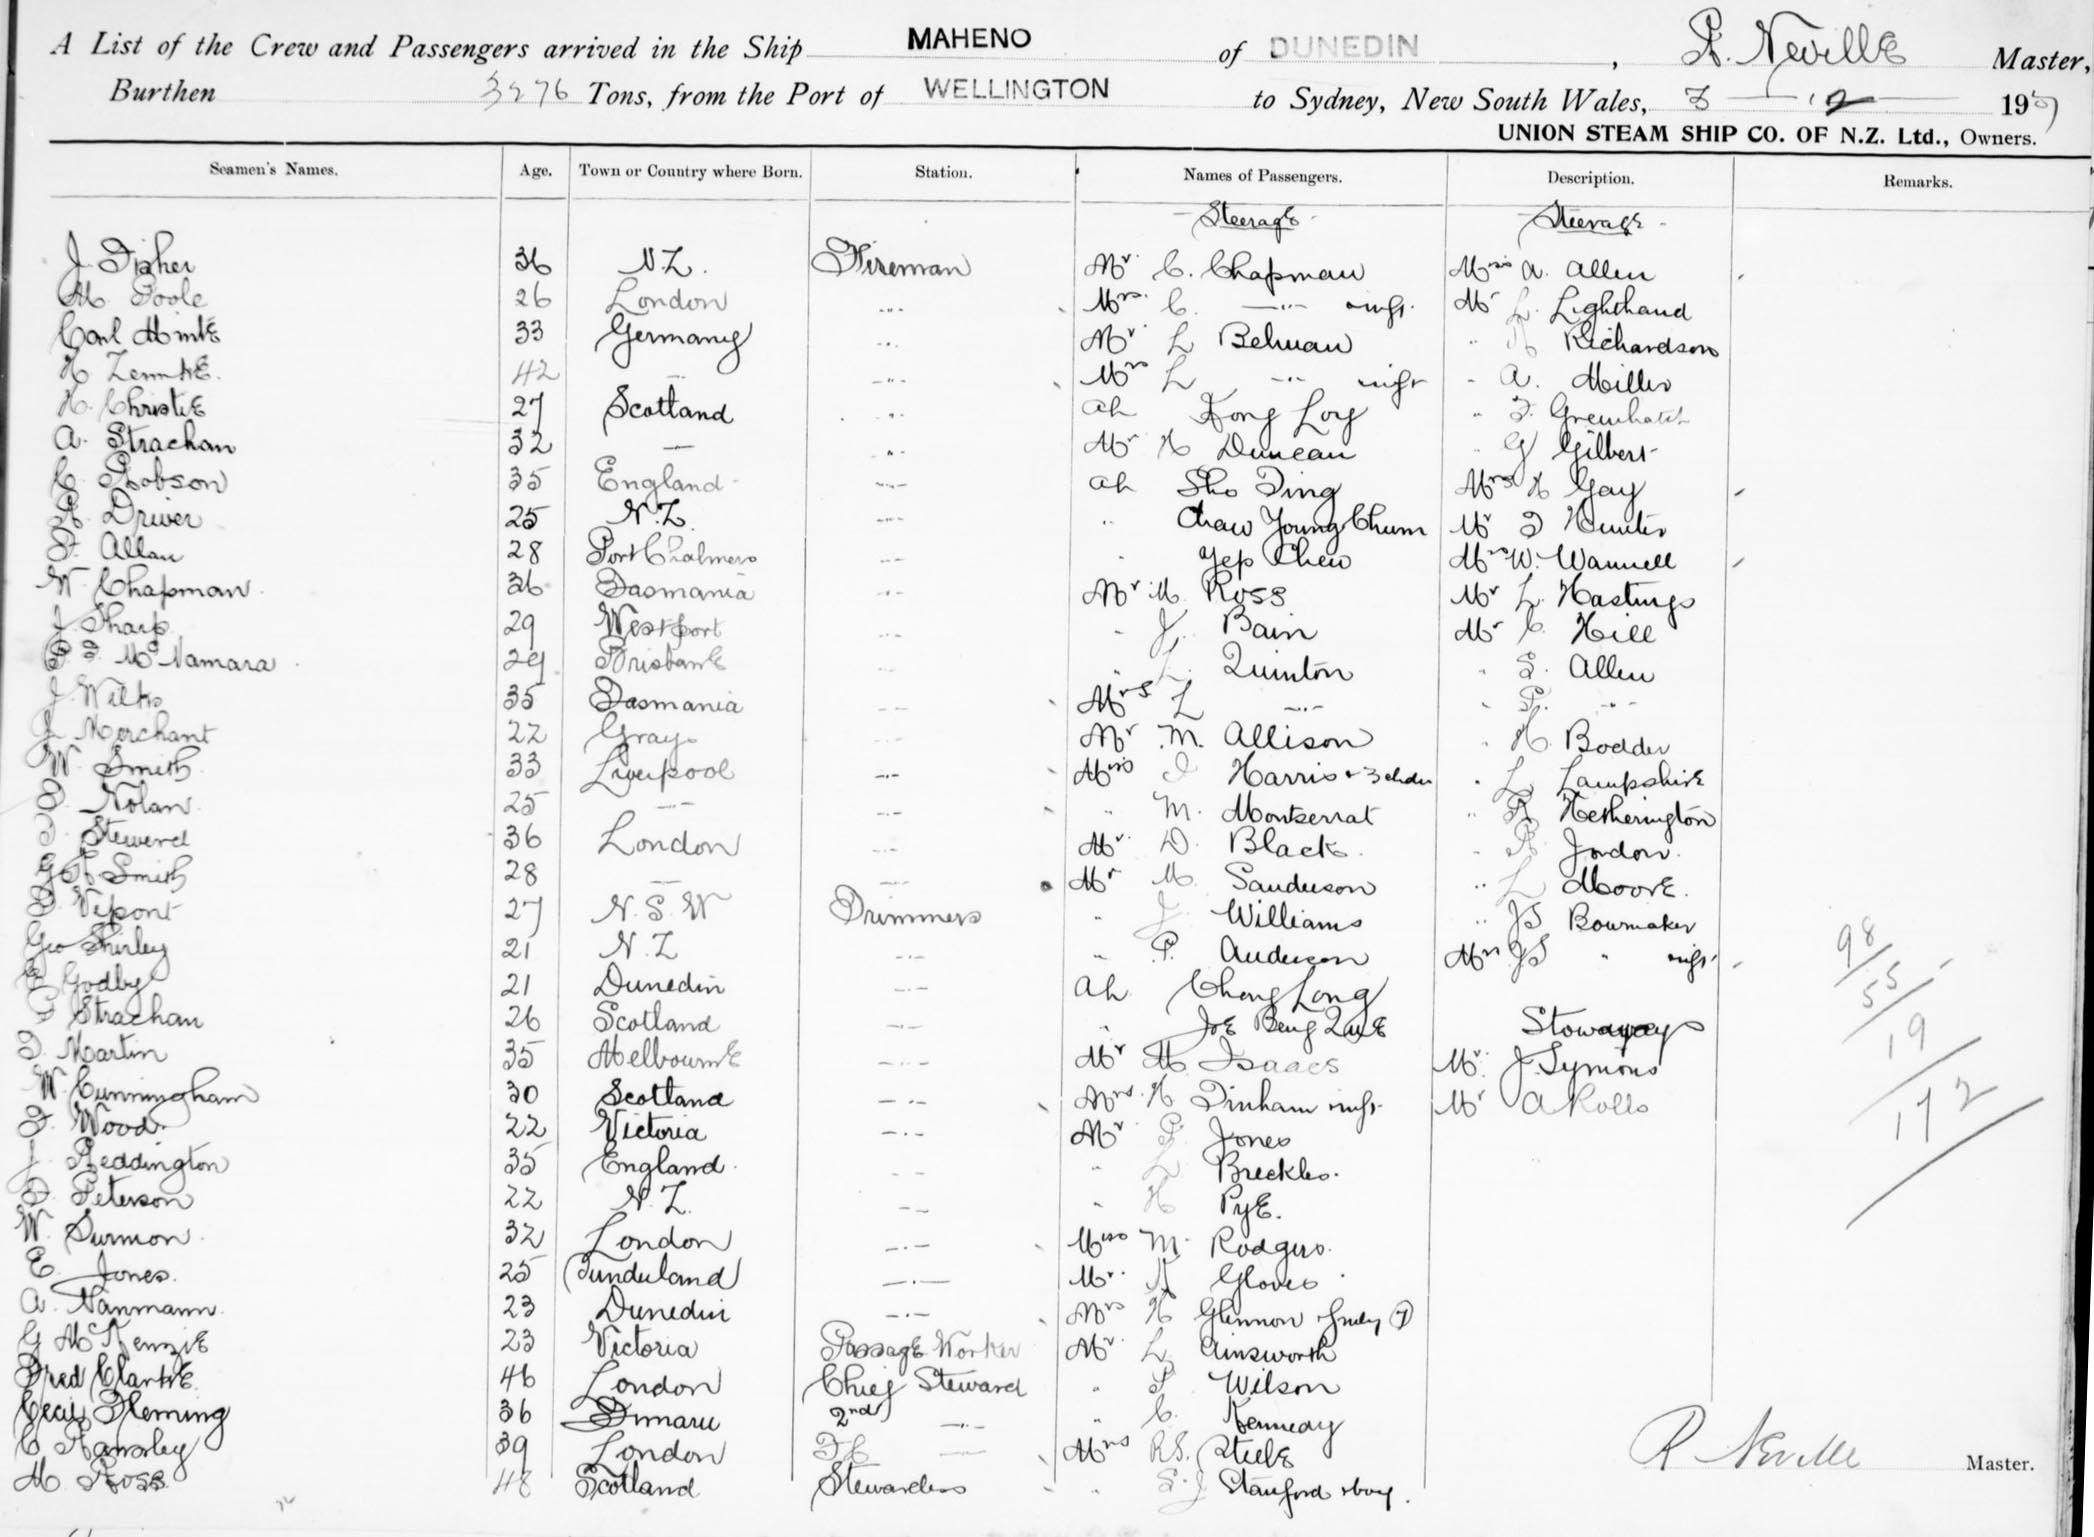 A List of the Crew and Passengers arrived in the Ship MAHENO of DUNEDIN, R. Neville Master,
Burthen 3276 Tons, from the Port of WELLINGTON to Sydney, New South Wales, 12 190
UNION STEAM SHIP CO. OF N.Z. Ltd., Owners.
Seamen's Names. Age. Town or Country where Born. Station. Names of Passengers. Description. Remarks.
Steerage Steerage
J. Fisher 36 N.Z. Fireman Mr. C. Chapman Miss A. Allen
M. Poole 26 London -"- Mrs. C. -"- inft. Mr L. Lighthand
Carl Hinke 33 Germany -"- Mr. L Belman " Richardson
H. Zemke. 42 -"- -"- Mrs L -"- inft " A. Miller
H. Christie 27 Scotland -"- Ah Kong Loy "
A. Strachan 32 — -"- Mr H Duncan " G Gilbert
C. Robson 35 England -"- Ah Sho Ting Mrs H Gay
R. Driver 25 N.Z. -"- " Chaw Young Chum Mr J Hunter
F. Allan 28 Port Chalmers -"- " Yep Chew Mrs W. Wannell
W. Chapman 36 Tasmania -"- Mr. M. Ross Mr L. Hastings
J. Sharp 29 Westport -"- " J. Bain Mr. C. Hill
McNamara 29 Brisbane -"- " L. Quinton " S. Allen
J. Wilks 35 Tasmania -"- Mrs L -"- " P. -"-
J. Merchant 22 Grays -"- Mr M. Allison " H. Bodder
W. Smith 33 Liverpool -"- Miss Harris + 3 chdn " L. Lampshire
Nolan 25 -"- -"- " M. Montserrat " Hetherington
Steward 36 London -"- Mr. D. Black. " R. Jordon.
Smith 28 — -"- Mr M. Sanderson " L Moore.
Vipont 27 N.S.W Trimmers " J. Williams " JS Bowmaker
Geo Shirley 21 N.Z -"- " P. Anderson Mrs JS " inft
Godby 21 Dunedin -"- Ah Chong Long
Strachan 26 Scotland -"- " Joe Beng Que Stowaways
Martin 35 Melbourne -"- Mr M. Isaacs Mr. J. Symons
W. Cunningham 30 Scotland -"- Mrs. H. Dinham inft. Mr A Rolls
F. Wood. 22 Victoria -"- Mr P. Jones
J. Reddington 35 England. -"- " L. Breckles.
Peterson 22 N.Z. -"- " H Pye.
W. Surmon 32 London -"- Miss M. Rodgers.
E. Jones. 25 Sunderland -"- Mr. Glover
A. Nanmann. 23 Dunedin -"- Mrs H Glennon
G McKenzie 23 Victoria Passage Worker Mr. L. Ainsworth
Fred Clarke 46 London Chief Steward " Wilson
Cecil Fleming 36 Timaru 2nd -"- " C. Kennedy
C. Ramsley 39 London — Mrs R.S. Steele
M. Ross. 48 Scotland Stewardess " S. J Stanford + boy.
98
55
19
172
R Neville Master.